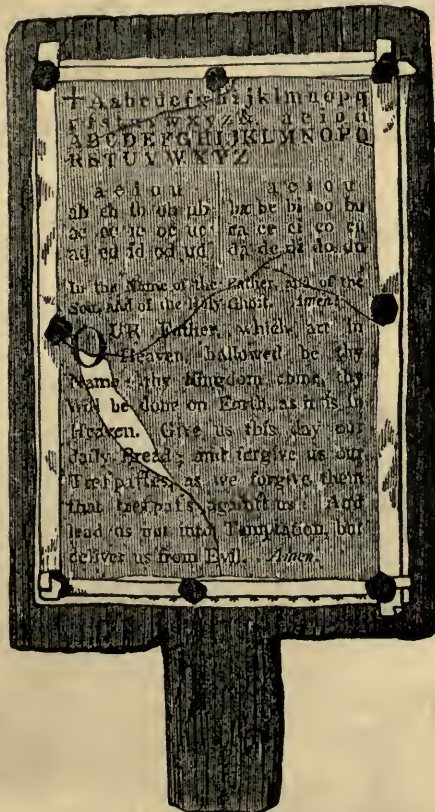 + A a b c d e f g h i j k l m n o p q
r s t u v w x y z &. a e i o u
A B C D E F G H I J K L M N O P Q
R S T U V W X Y Z
a e i o u a e i o u
ab eb ib ob ub ba be bi bo bu
ac ec ic oc uc ca ce ci co cu
ad ed id od ud da de di do du
In the Name of the Father, and of the
Son, and of the Holy Ghost. Amen.
OUR Father, which art in
Heaven, hallowed be thy
Name; thy Kingdom come, thy
Will be done on Earth, as it is in
Heaven. Give us this day our
daily Bread; and forgive us our
Trespasses, as we forgive them
that trespass against us: And
lead us not into Temptation, but
deliver us from Evil. Amen.